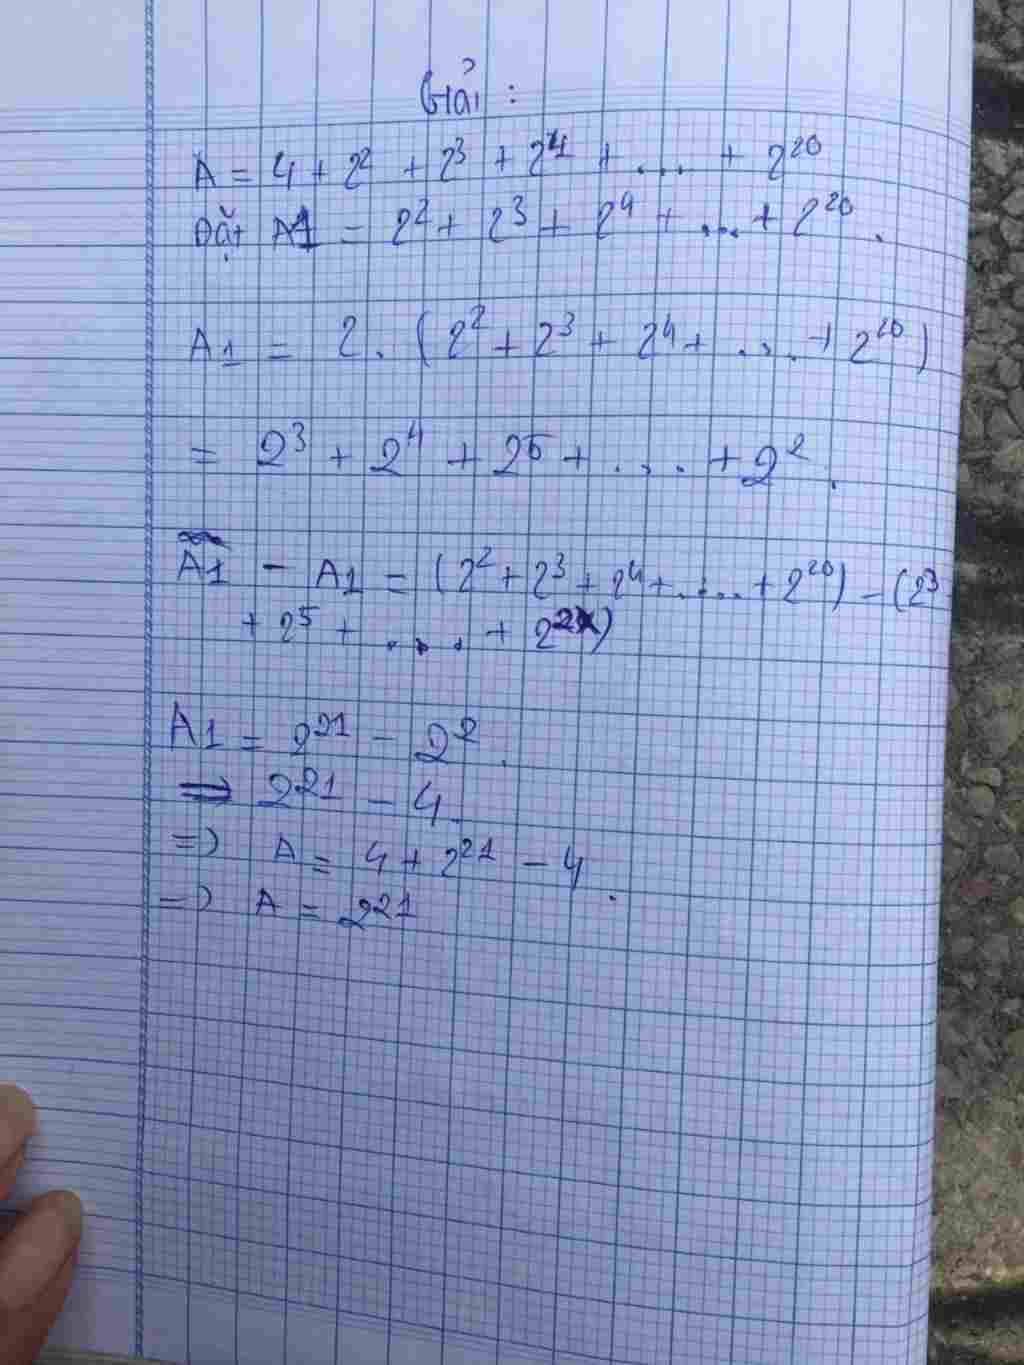 Giải :
A = 4 + 2² + 2³ + 2⁴ + ... + 2²⁰
Đặt A1 = 2² + 2³ + 2⁴ + ... + 2²⁰.
A1 = 2. (2² + 2³ + 2⁴ + .... + 2²⁰)
= 2³ + 2⁴ + 2⁵ + .... + 2².
A1 - A1 = (2² + 2³ + 2⁴ + ..... + 2²⁰) - (2³
+ 2⁵ + .... + 2²¹)
A1 = 2²¹ - 2².
=> 2²¹ - 4.
=> A = 4 + 2²¹ - 4.
=> A = 2²¹